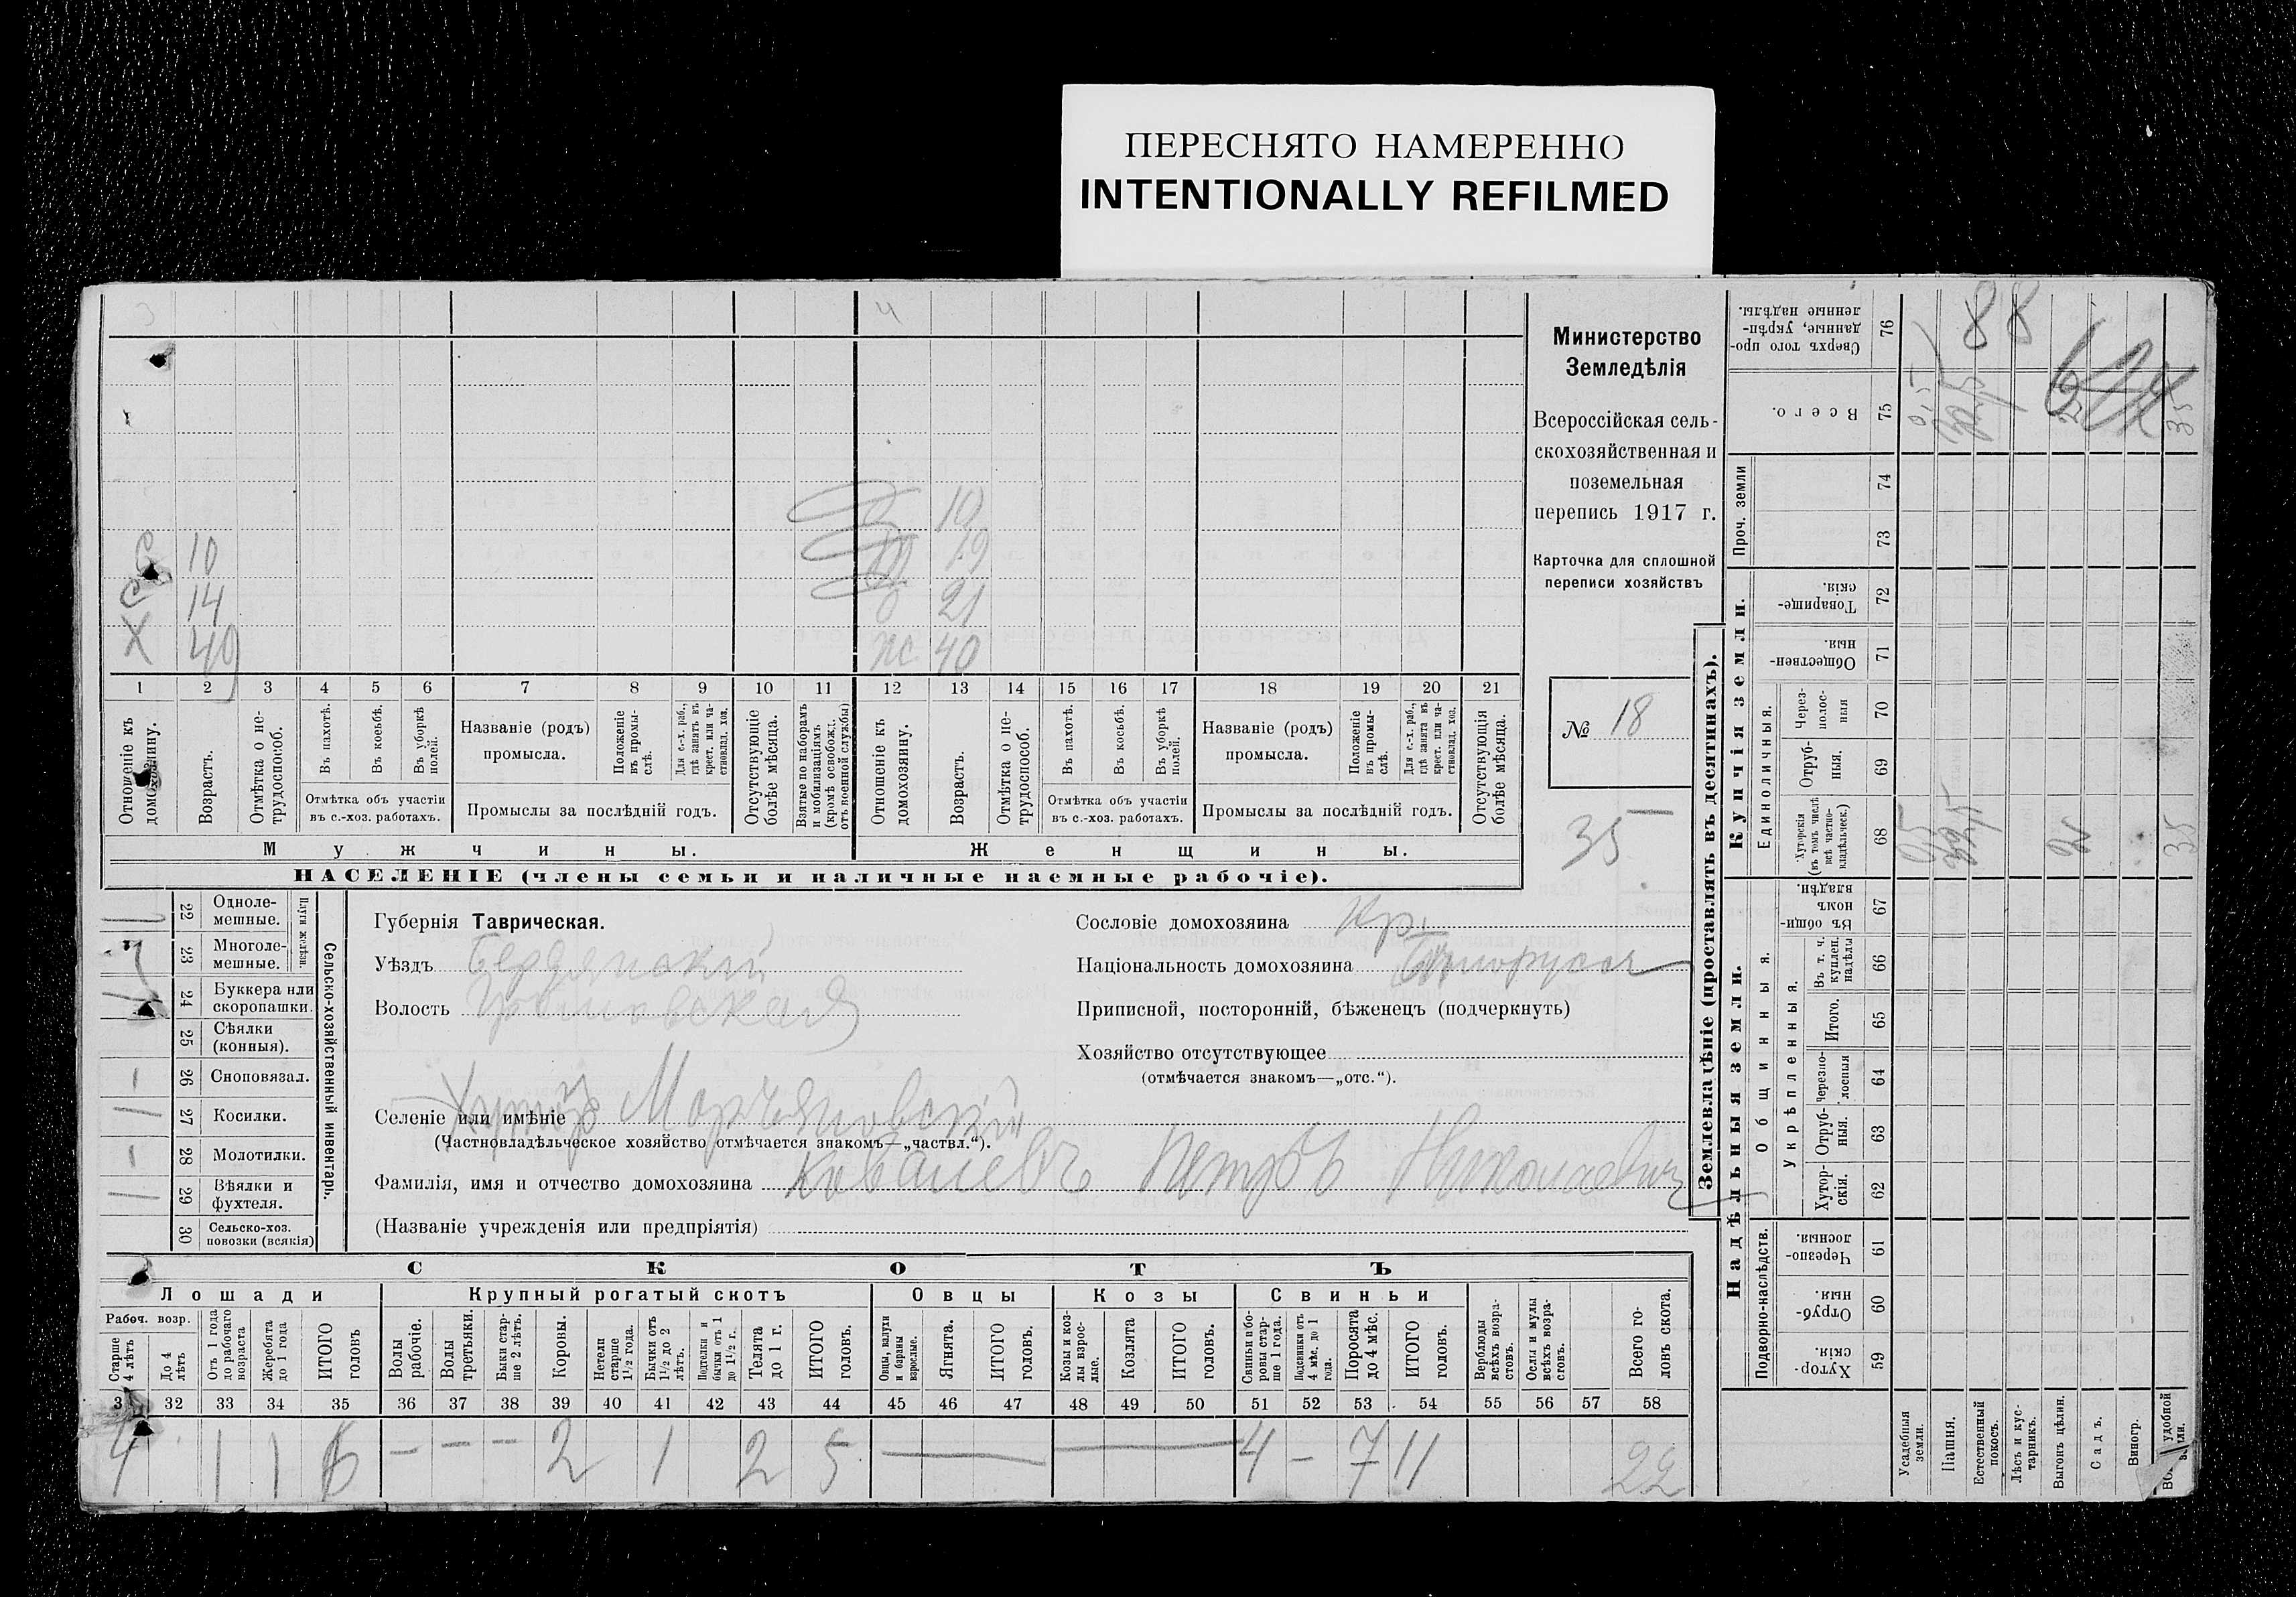 ПЕРЕСНЯТО НАМЕРЕННО
INTENTIONALLY REFILMED
3
4
С 10
С 14
Х 49
10
19
О 21
жс 40
1 2 3 4 5 6 7 8 9 10 11 12 13 14 15 16 17 18 19 20 21
Отношеніе къ домохозяину.
Возрастъ.
Отмѣтка о нетрудоспособ.
Въ пахотѣ.
Въ косьбѣ.
Въ уборкѣ полей.
Отмѣтка объ участіи
въ с.-хоз. работахъ.
Названіе (родъ)
промысла.
Положеніе въ промыслѣ.
Для с.-х. раб., гдѣ занятъ въ крест. или частновлад. хоз.
Промыслы за послѣдній годъ.
Отсутствующіе болѣе мѣсяца.
Взятые по наборамъ и мобилизаціямъ (кромѣ освобожд. отъ военной службы)
Отношеніе къ домохозяину.
Возрастъ.
Отмѣтка о нетрудоспособ.
Въ пахотѣ.
Въ косьбѣ.
Въ уборкѣ полей.
Отмѣтка объ участіи
въ с.-хоз. работахъ.
Названіе (родъ)
промысла.
Положеніе въ промыслѣ.
Для с.-х. раб., гдѣ занятъ въ крест. или частновлад. хоз.
Промыслы за послѣдній годъ.
Отсутствующія болѣе мѣсяца.
Мужчины.
Женщины.
НАСЕЛЕНІЕ (члены семьи и наличные наемные рабочіе).
Министерство
Земледѣлія
Всероссійская сель-
скохозяйственная и
поземельная
перепись 1917 г.
Карточка для сплошной
переписи хозяйствъ
№ 18
35
22 Однолемешные.
23 Многолемешные.
Плуги желѣзн.
24 Буккера или скоропашки.
25 Сѣялки (конныя).
26 Сноповязал.
27 Косилки.
28 Молотилки.
29 Вѣялки и фухтеля.
30 Сельско-хоз. повозки (всякія)
Сельско-хозяйственный инвентарь.
Губернія Таврическая.
Уѣздъ Бердянскій
Волость
Селеніе или имѣніе Хуторъ Мартыновскій
(Частновладѣльческое хозяйство отмѣчается знакомъ—„частвл.“).
Фамилія, имя и отчество домохозяина Ковалевъ Петръ Николаевич
(Названіе учрежденія или предпріятія)
Сословіе домохозяина Кр.
Національность домохозяина
Приписной, посторонній, бѣженецъ (подчеркнуть)
Хозяйство отсутствующее
(отмѣчается знакомъ—„отс.“).
СКОТЪ
Лошади
Крупный рогатый скотъ
Овцы
Козы
Свиньи
Рабоч. возр.
Старше 4 лѣтъ
До 4 лѣтъ
Отъ 1 года до рабочаго возраста
Жеребята до 1 года
ИТОГО головъ
Волы рабочіе.
Волы третьяки.
Быки старше 2 лѣтъ.
Коровы.
Нетели старше 1½ года.
Бычки отъ 1½ до 2 лѣтъ.
Подтелки и бычки отъ 1 до 1½ г.
Телята до 1 г.
ИТОГО головъ.
Овцы, валухи и бараны взрослые.
Ягнята.
ИТОГО головъ.
Козы и козлы взрослые.
Козлята
ИТОГО головъ.
Свиньи и боровы старше 1 года.
Подсвинки отъ 4 мѣс. до 1 года.
Поросята до 4 мѣс.
ИТОГО головъ.
Верблюды всѣхъ возрастовъ.
Ослы и мулы всѣхъ возрастовъ.
Всего головъ скота.
32 33 34 35 36 37 38 39 40 41 42 43 44 45 46 47 48 49 50 51 52 53 54 55 56 57 58
4 1 1 6 – – – 2 1 2 5 4 – 7 11 22
Землевладѣніе (проставлять въ десятинахъ).
Сверхъ того проданные, укрѣпленные надѣлы. 76
Всего. 75
Проч. земли
74
73
Купчія земли.
Товарищескія. 72
Общественныя. 71
Единоличныя.
Черезполосныя 70
Отрубныя. 69
Хуторскія (въ томъ числѣ всѣ частновладѣльческ.) 68
Надѣльныя земли.
Общинныя.
Въ общинномъ владѣн. 67
Въ т. ч. куплен. надѣлы 66
Укрѣпленныя.
Итого. 65
Черезполосныя 64
Отрубныя. 63
Хуторскія. 62
Подворно-наслѣдств.
Черезполосныя. 61
Отрубныя. 60
Хуторскія. 59
Усадебныя земли.
Пашня.
Естественный покосъ.
Лѣсъ и кустарникъ.
Выгонъ цѣлин.
Садъ.
Виногр.
удобной
88
0,5
35
35